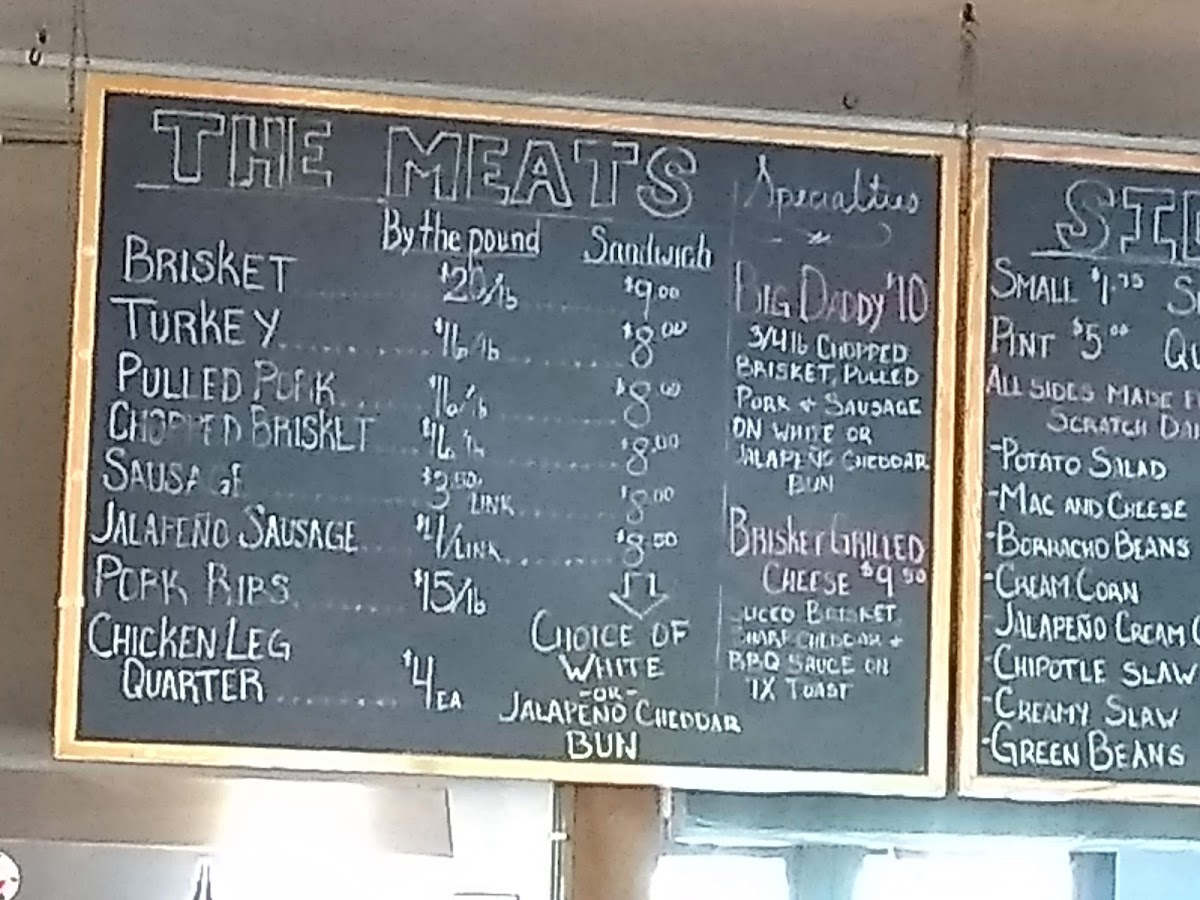 THE MEATS
By the pound Sandwich
BRISKET $20/lb $9.00
TURKEY $16/lb $8.00
PULLED PORK $16/lb $8.00
CHOPPED BRISKET $16/lb $8.00
SAUSAGE $3.50/LINK $8.00
JALAPEÑO SAUSAGE $4/LINK $8.50
PORK RIBS $15/lb
CHICKEN LEG
QUARTER $4 EA
CHOICE OF
WHITE
-OR-
JALAPEÑO CHEDDAR
BUN
Specialties
BIG DADDY $10
3/4 lb CHOPPED
BRISKET, PULLED
PORK + SAUSAGE
ON WHITE OR
JALAPEÑO CHEDDAR
BUN
BRISKET GRILLED
CHEESE $9.50
SLICED BRISKET,
SHARP CHEDDAR +
BBQ SAUCE ON
TX TOAST
SMALL $1.75
PINT $5.00
ALL SIDES MADE
SCRATCH
-POTATO SALAD
-MAC AND CHEESE
-BORRACHO BEANS
-CREAM CORN
-JALAPEÑO CREAM
-CHIPOTLE SLAW
-CREAMY SLAW
-GREEN BEANS